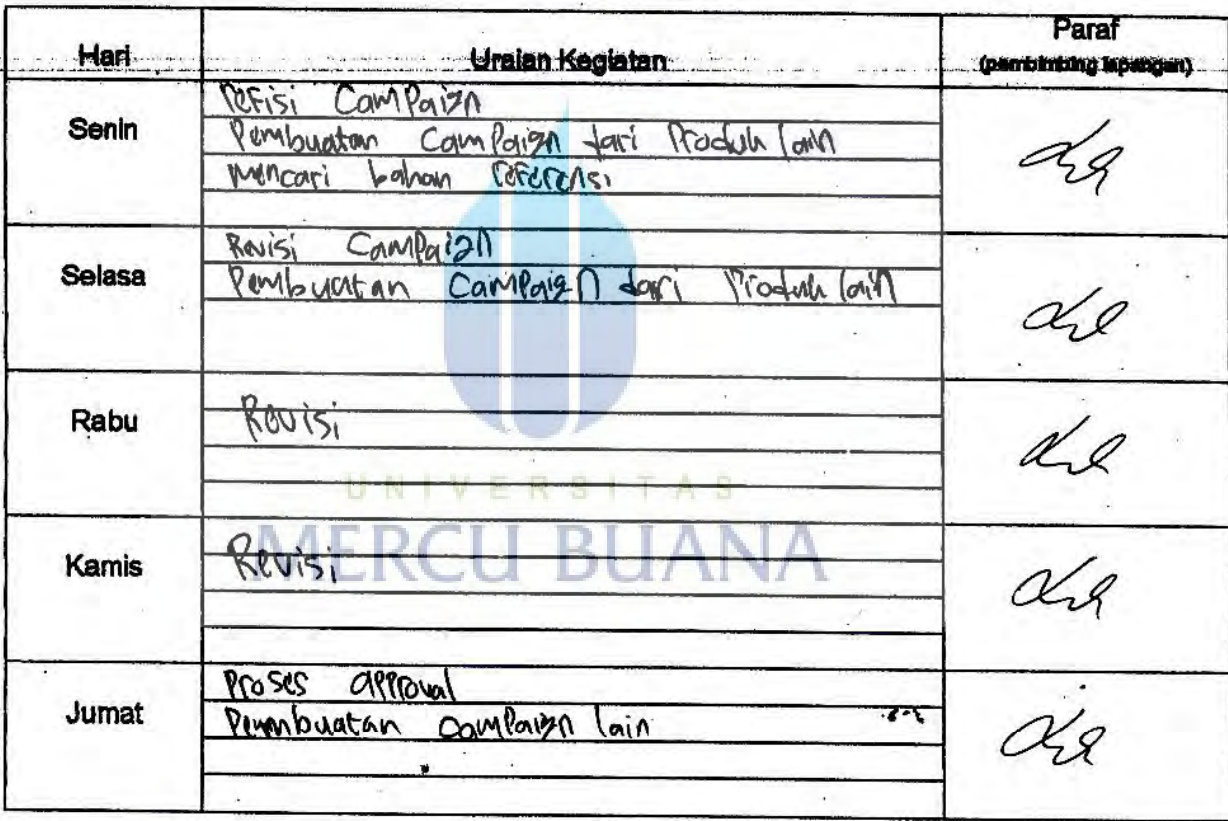 Hari Uraian Kegiatan Paraf
(pembimbing lapangan)
Senin
refisi Campaign
Pembuatan Campaign dari Produk lain
mencari bahan referensi
Selasa
Revisi Campaign
Pembuatan Campaign dari Produk lain
Rabu
Revisi
UNIVERSITAS
MERCU BUANA
Kamis
Revisi
Jumat
Proses approval
Pembuatan campaign lain